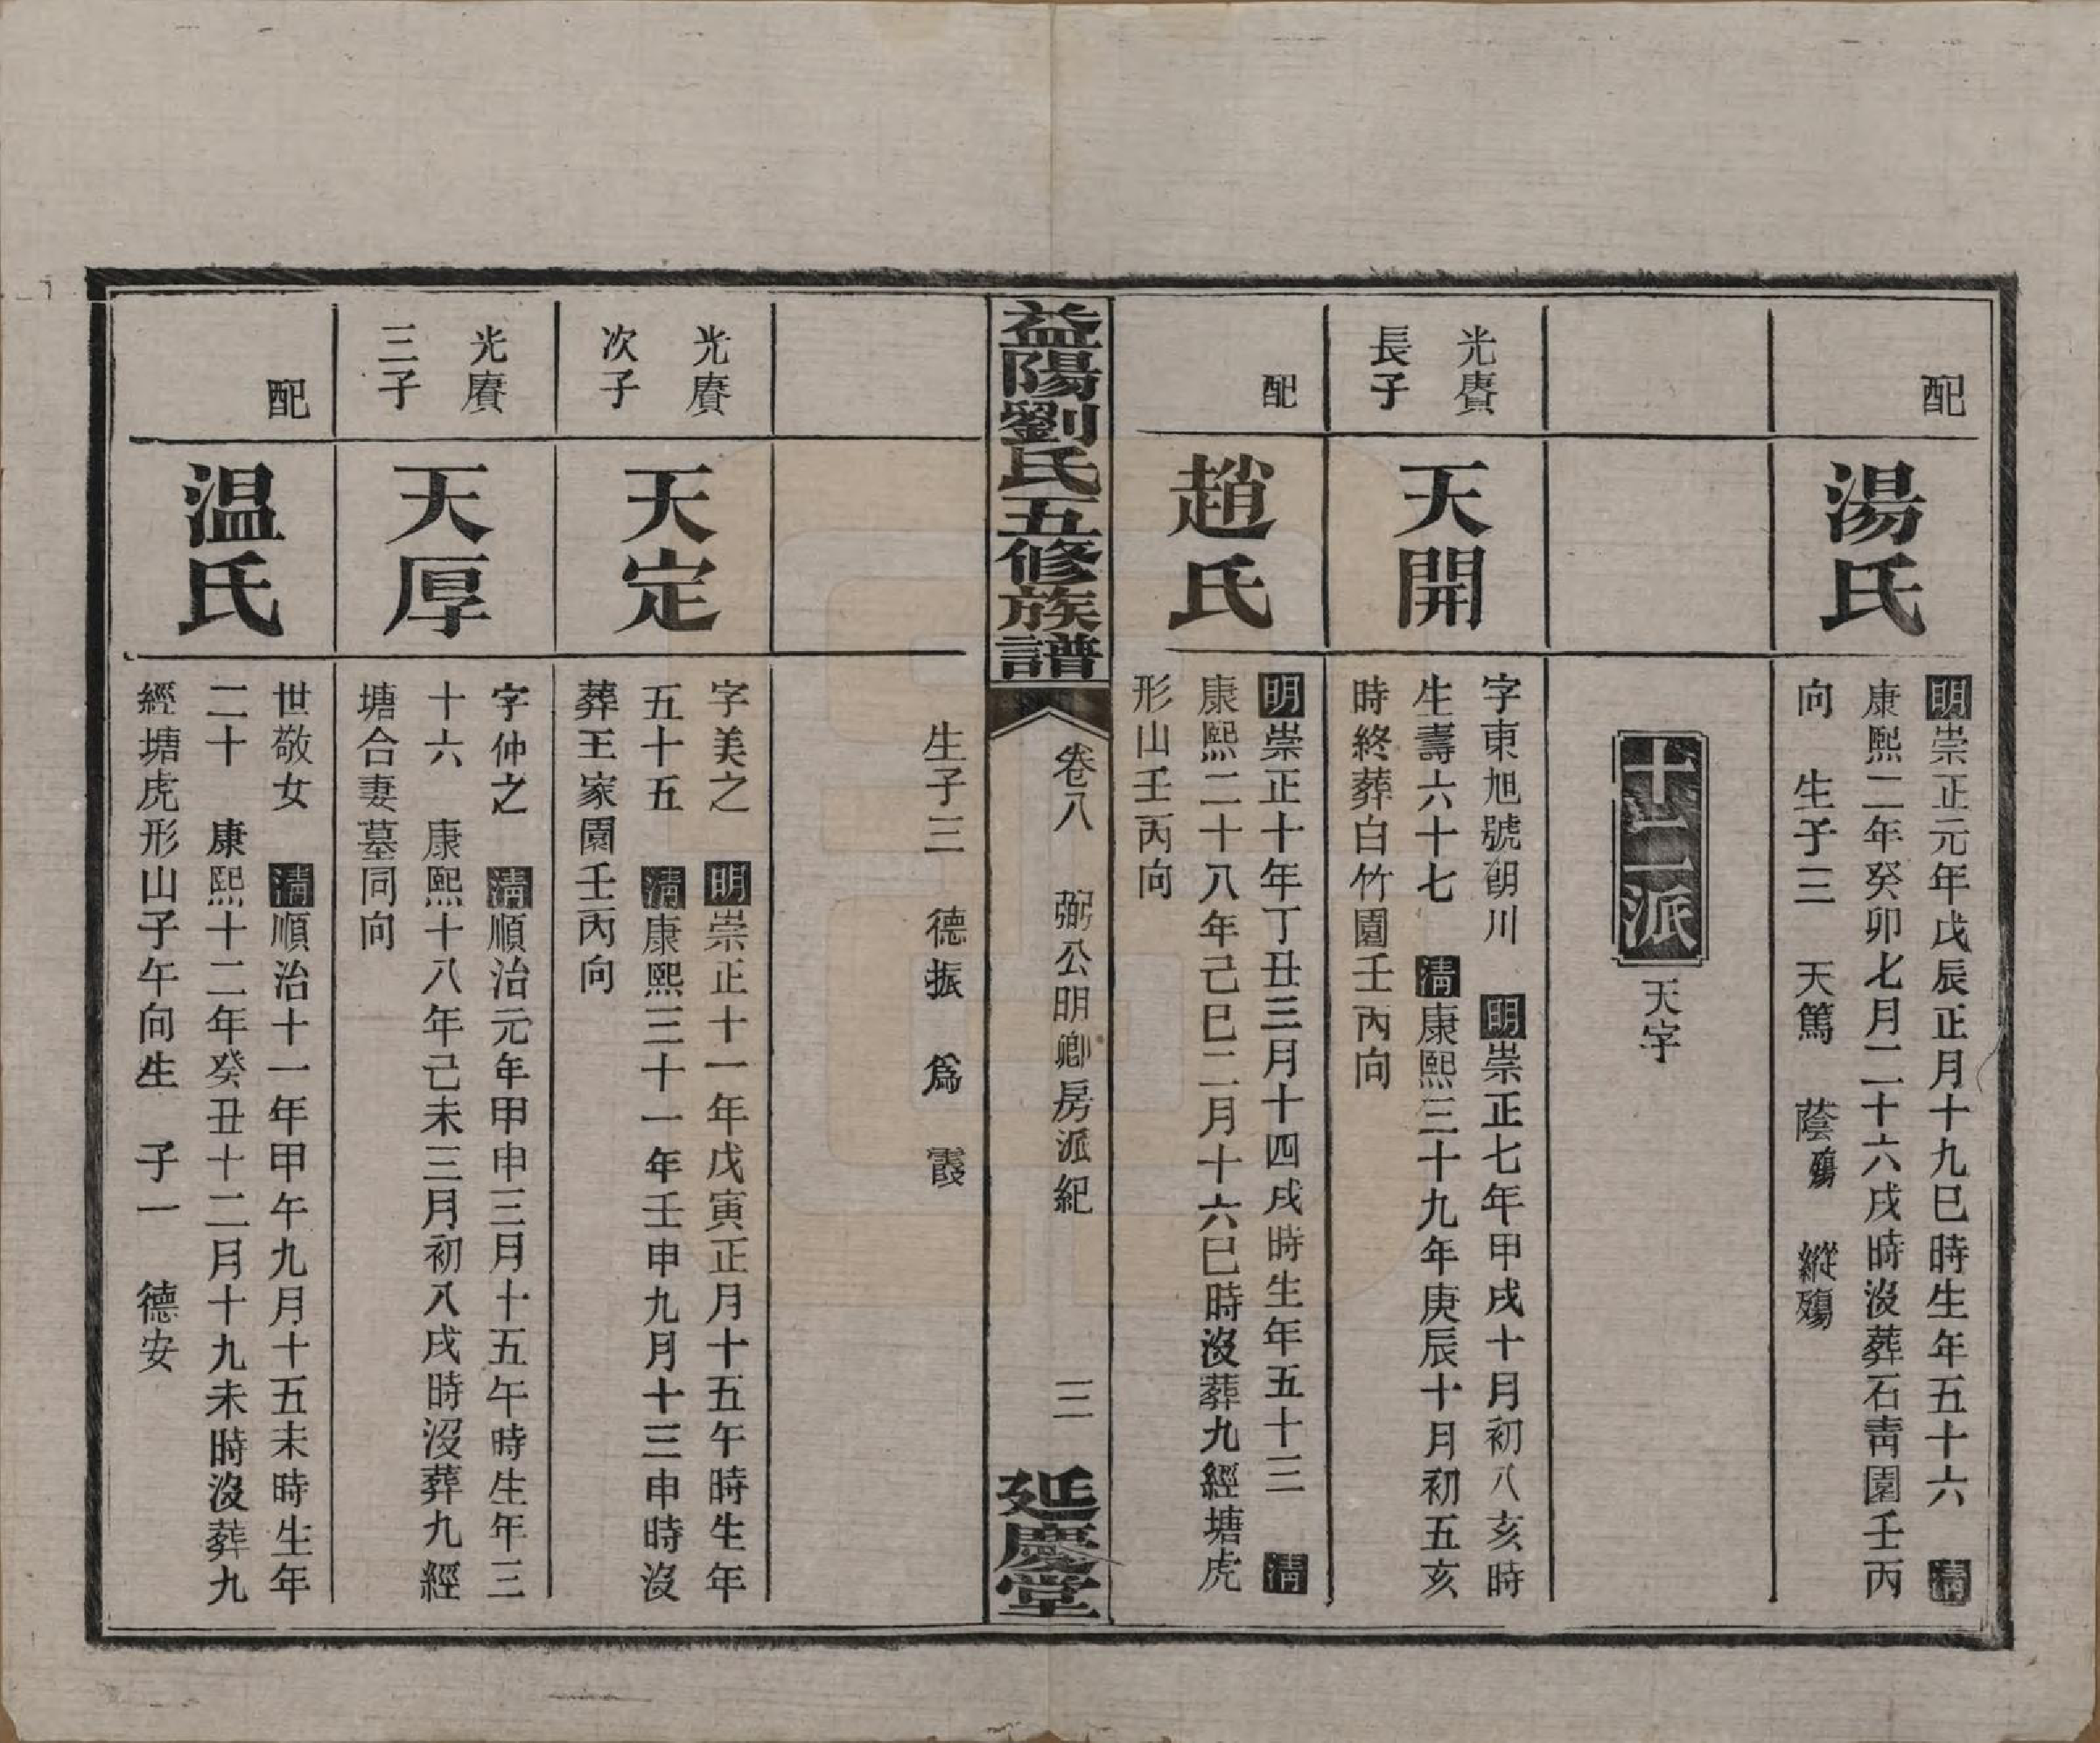 配
湯氏
明崇正元年戊辰正月十九巳時生年五十六 清
康熙二年癸卯七月二十六戌時沒葬石靑園壬丙
向 生子三 天篤 蔭殤 縱殤
十二派 天字
光賡
長子
天開
字東旭號朗川 明崇正七年甲戌十月初八亥時
生壽六十七 清康熙三十九年庚辰十月初五亥
時終葬白竹園壬丙向
配
趙氏
明崇正十年丁丑三月十四戌時生年五十三 清
康熙二十八年己巳二月十六巳時沒葬九經塘虎
形山壬丙向
益陽劉氏五修族譜
卷八 弼公明卿房派紀
三
延慶堂
生子三 德振 爲 霞
光賡
次子
天定
字美之 明崇正十一年戊寅正月十五午時生年
五十五 清康熙三十一年壬申九月十三申時沒
葬王家園壬丙向
光賡
三子
天厚
字仲之 清順治元年甲申三月十五午時生年三
十六 康熙十八年己未三月初八戌時沒葬九經
塘合妻墓同向
配
温氏
世敬女 清順治十一年甲午九月十五未時生年
二十 康熙十二年癸丑十二月十九未時沒葬九
經塘虎形山子午向生 子一 德安